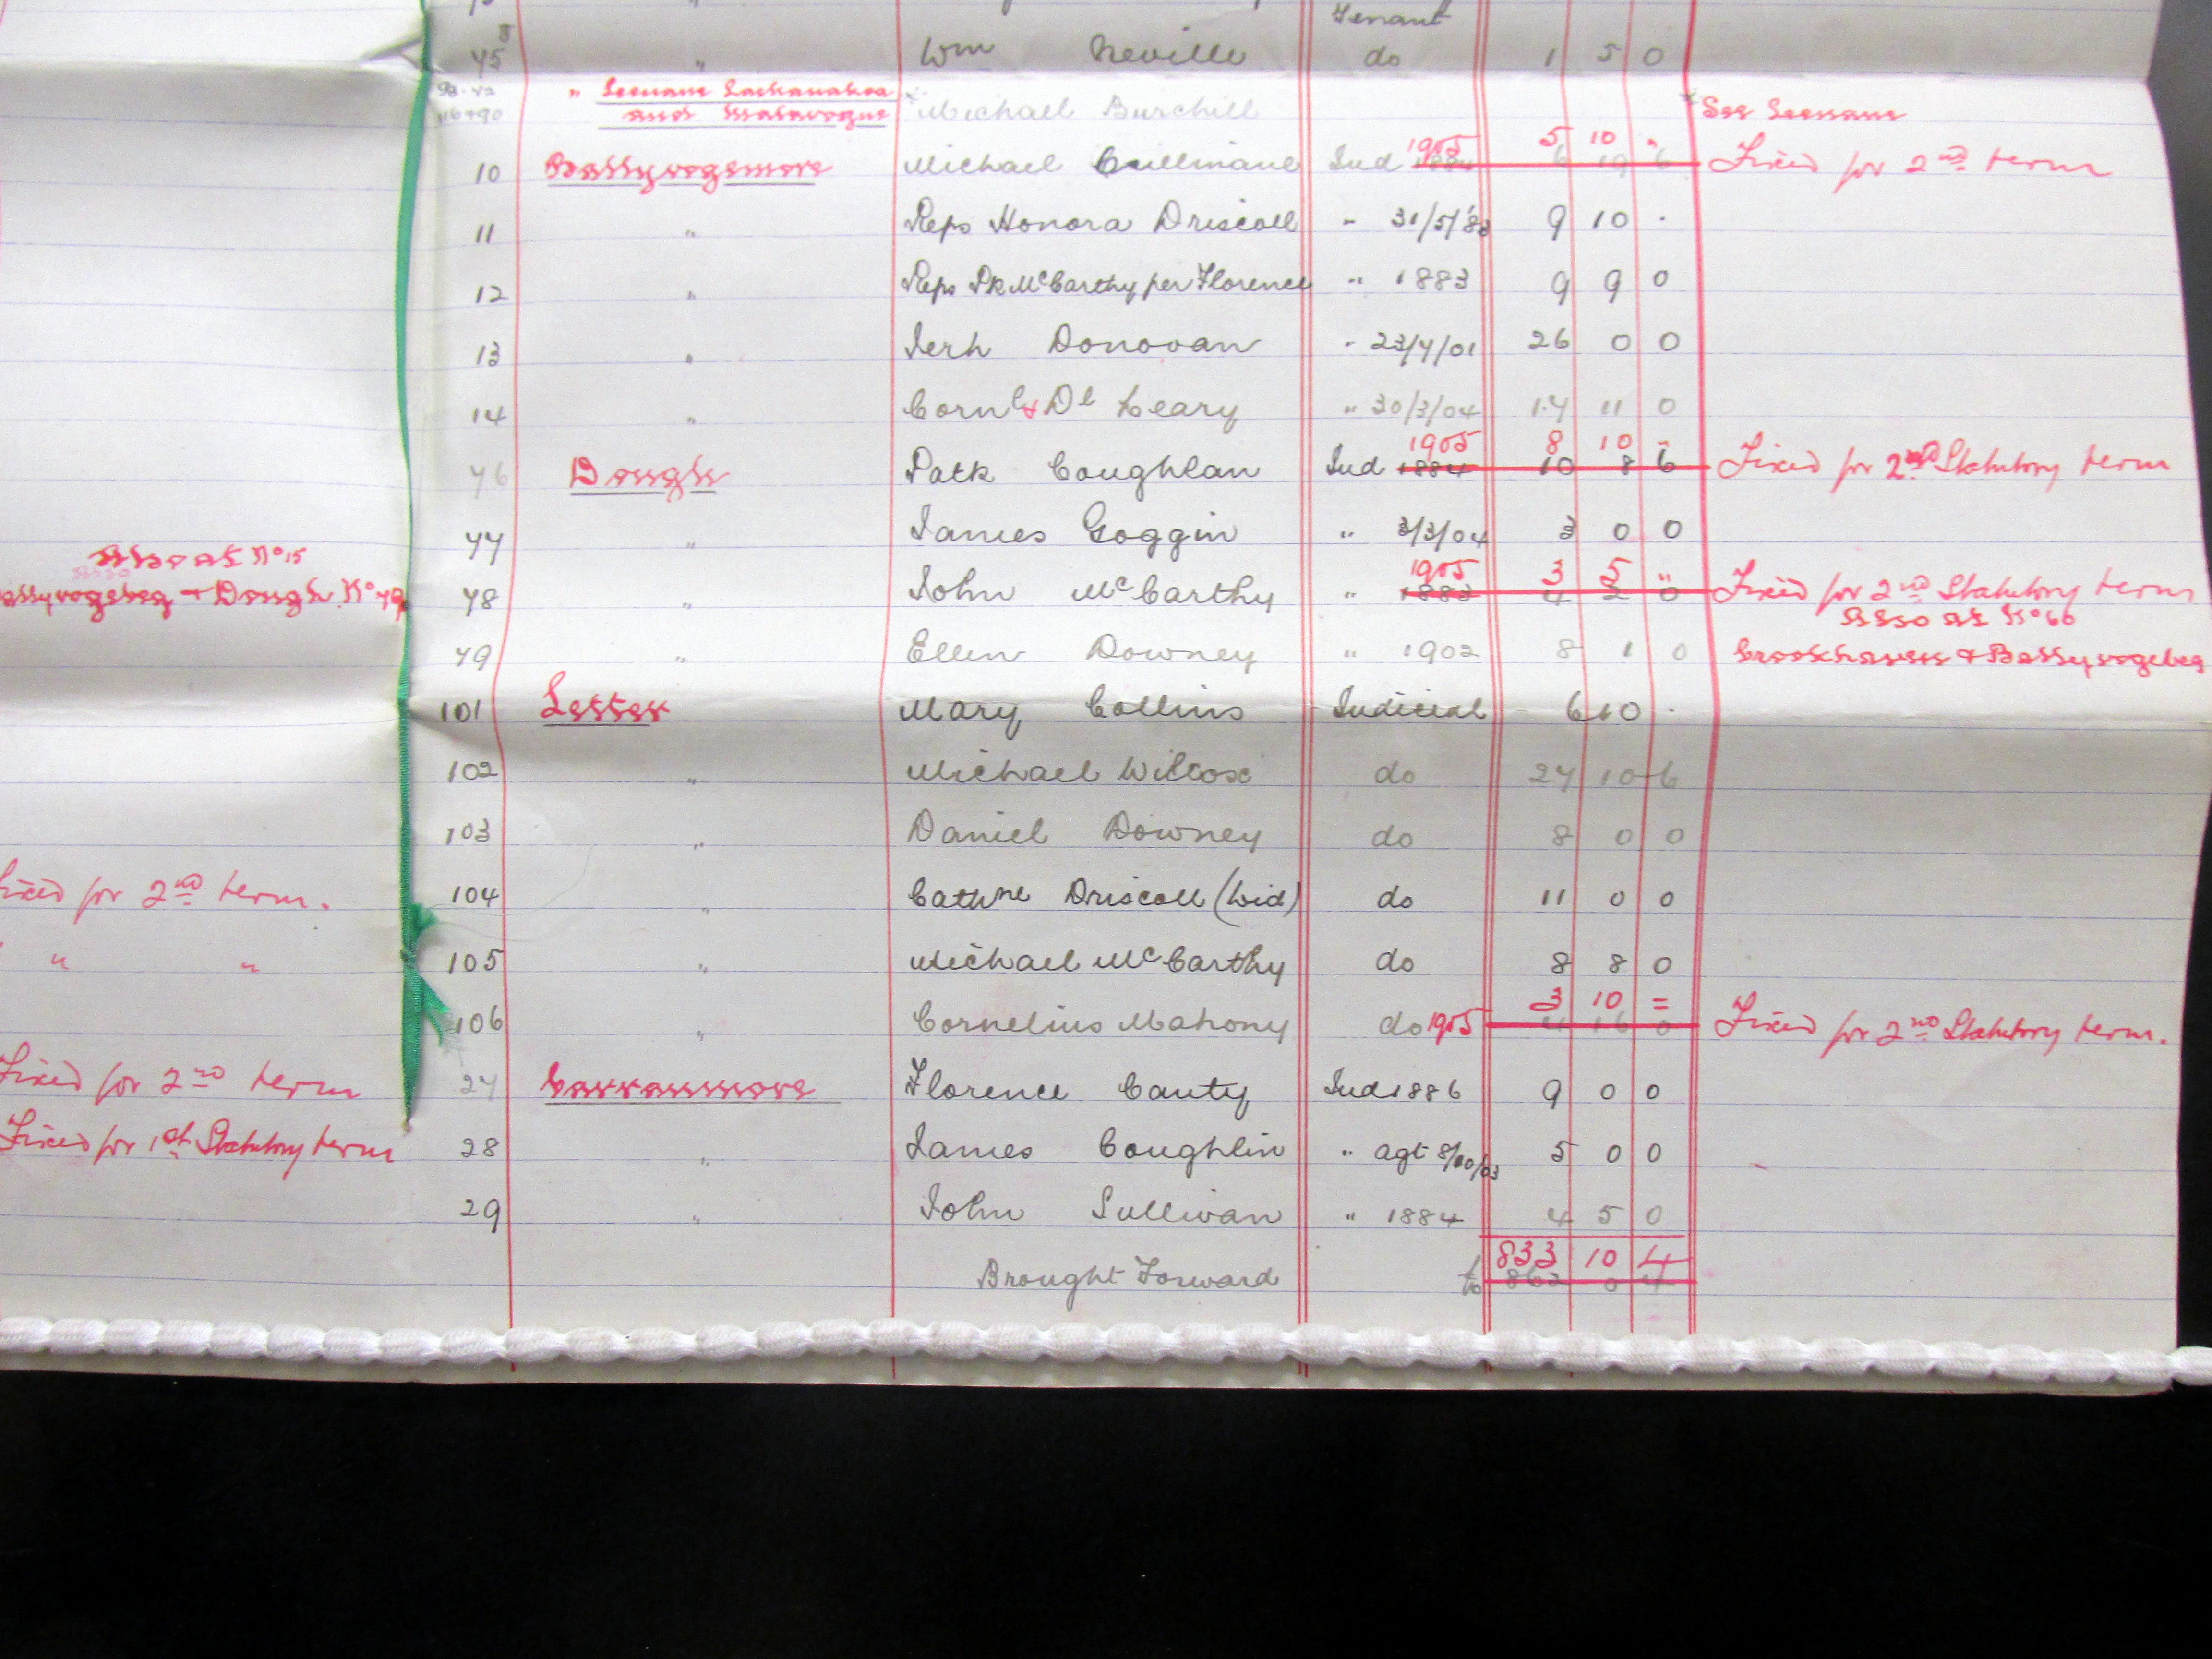 Tenant
75 " Wm Neville do 1 5 0
" Leenane Lackanakea
and Malavogue Michael Burchill See Leenane
1905 5 10 "
10 Ballyvogemore Michael Cullinane Jud 1884 6 19 6 Fixed for 2nd term
11 " Reps Honora Driscoll " 31/5/83 9 10 .
12 " Reps Pk McCarthy per Florence " 1883 9 9 0
13 " Jerh Donovan " 23/4/01 26 0 0
14 " Cornl & Dl Leary " 30/3/04 17 11 0
1905 8 10 "
76 Dough Patk Coughlan Jud 1884 10 8 6 Fixed for 2nd Statutory term
77 " James Goggin " 3/3/04 3 0 0
Also at No 15
1905 3 5 "
Ballyvogebeg + Dough No 79 78 " John McCarthy " 1883 4 2 0 Fixed for 2nd Statutory term
Also at No 66
79 " Ellen Downey " 1902 8 1 0 Crookhaven & Ballyvogebeg
101 Letter Mary Collins Judicial 6 10 .
102 " Michael Wilcox do 27 10 6
103 " Daniel Downey do 8 0 0
Fixed for 2nd term. 104 " Cathne Driscoll (Wid) do 11 0 0
" " 105 " Michael McCarthy do 8 8 0
3 10 =
106 " Cornelius Mahony do 1905 4 16 0 Fixed for 2nd Statutory term.
Fixed for 2nd term 27 Carranmore Florence Canty Jud 1886 9 0 0
Fixed for 1st Statutory term 28 " James Coughlin " agt 8/10/03 5 0 0
29 " John Sullivan " 1884 4 5 0
833 10 4
Brought Forward to 862 0 4